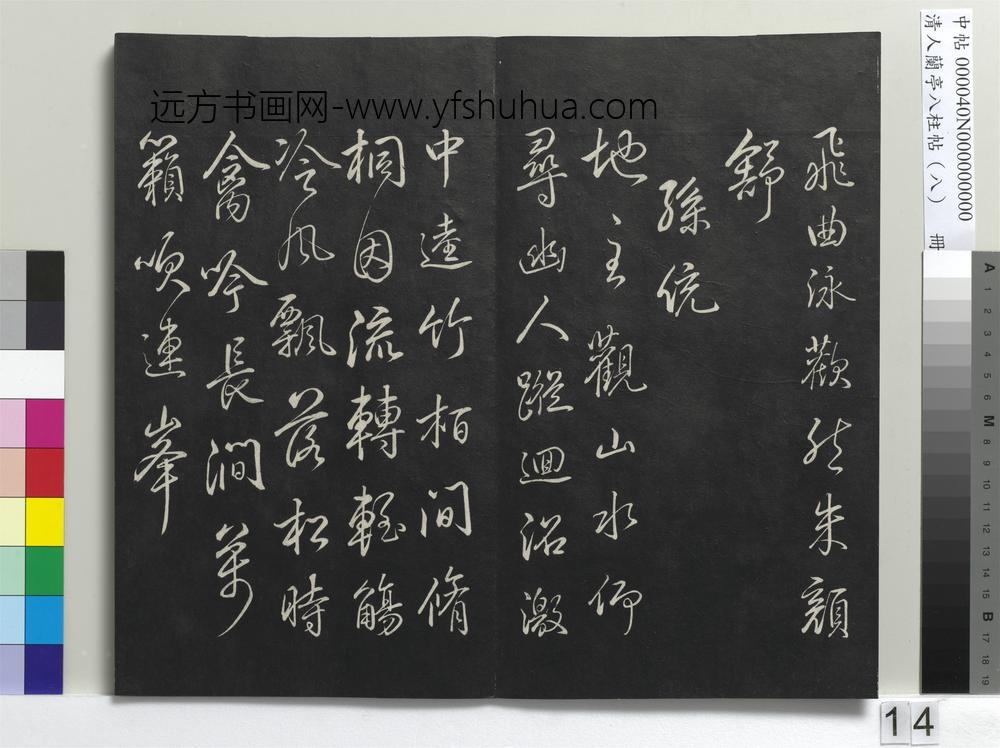 远方书画网-www.yfshuhua.com
中帖 000040N000000000
清人蘭亭八柱帖（八） 冊
飛曲泳歡然朱顏
舒
孫統
地主觀山水仰
尋幽人蹤迴沼激
中逵竹柏間脩
桐因流轉輕觴
冷風飄落松時
禽吟長澗萬
籟吹連峯
A 1 2 3 4 5 6 M 8 9 10 11 12 13 14 15 B 17 18 19
14